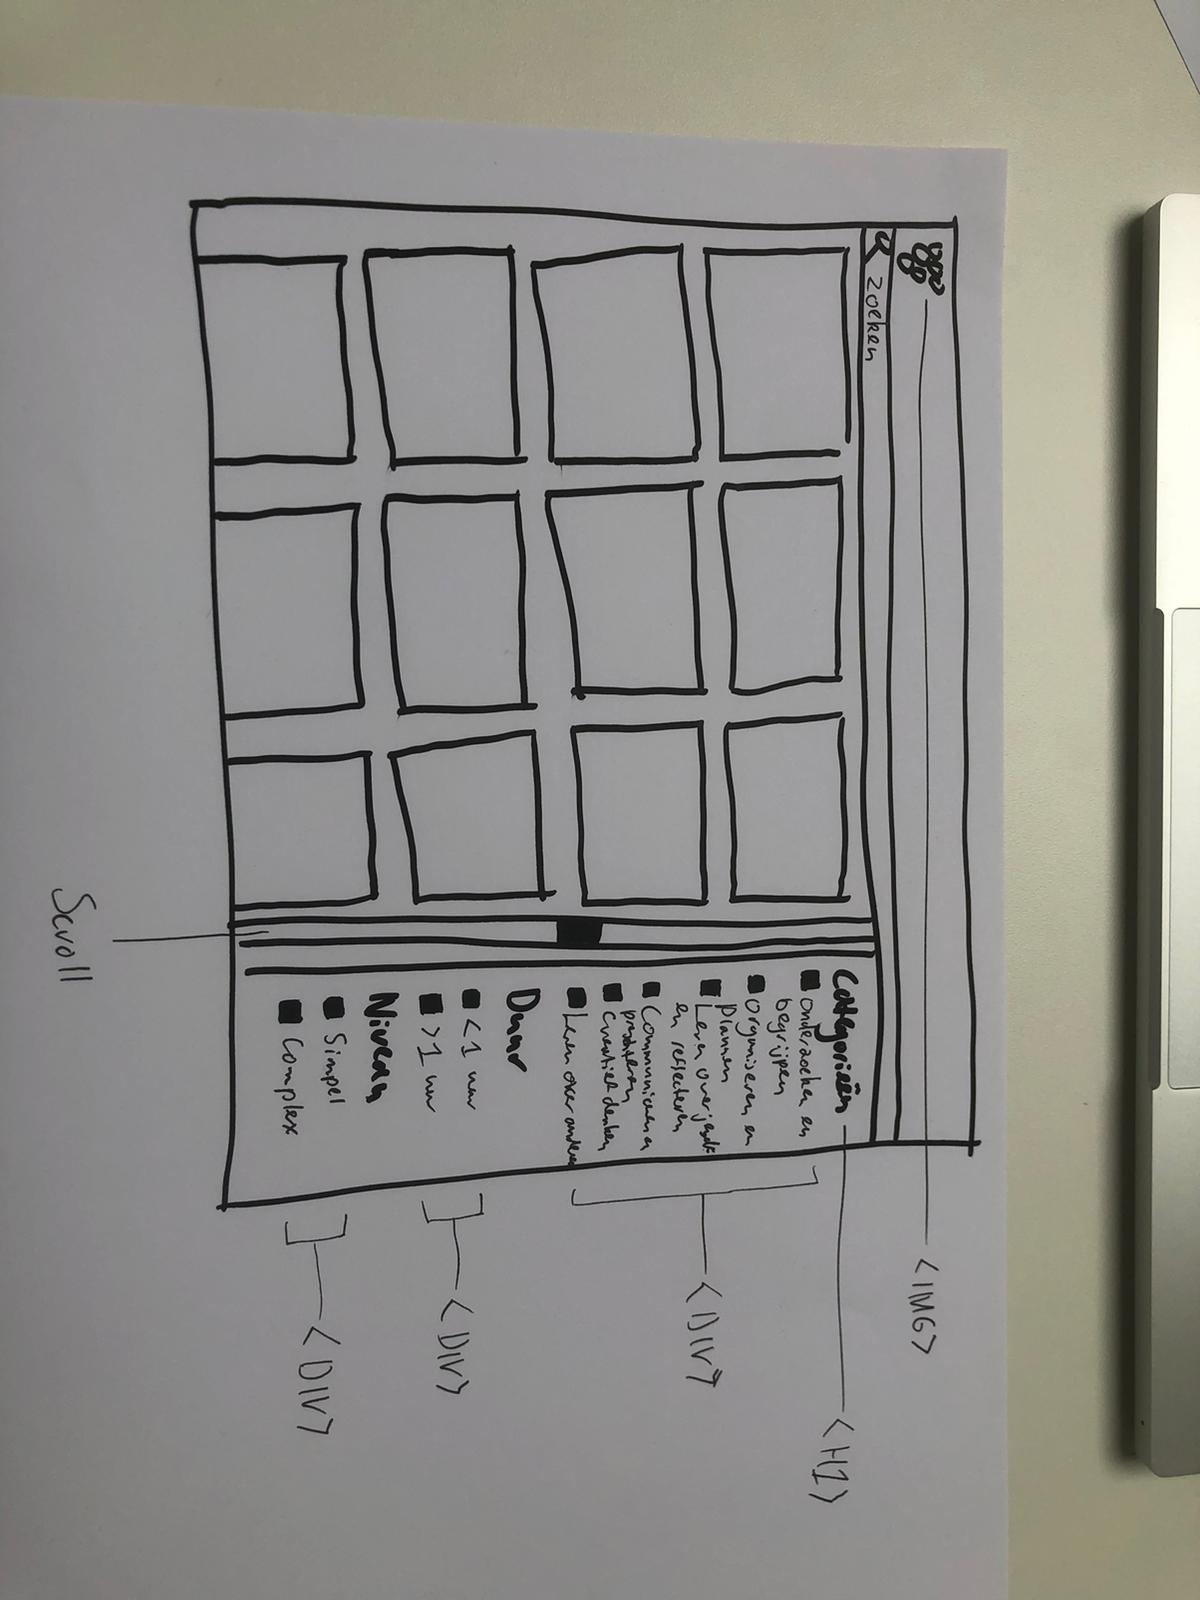 <IMG>
zoeken
Categorieën
<H1>
onderzoeken en
begrijpen
organiseren en
plannen
<DIV>
Leren over jezelf
en reflecteren
Communiceren en
presenteren
Creatief denken
Leren over anderen
Duur
<1 uur
<DIV>
>1 uur
Niveau
Simpel
<DIV>
Complex
Scroll